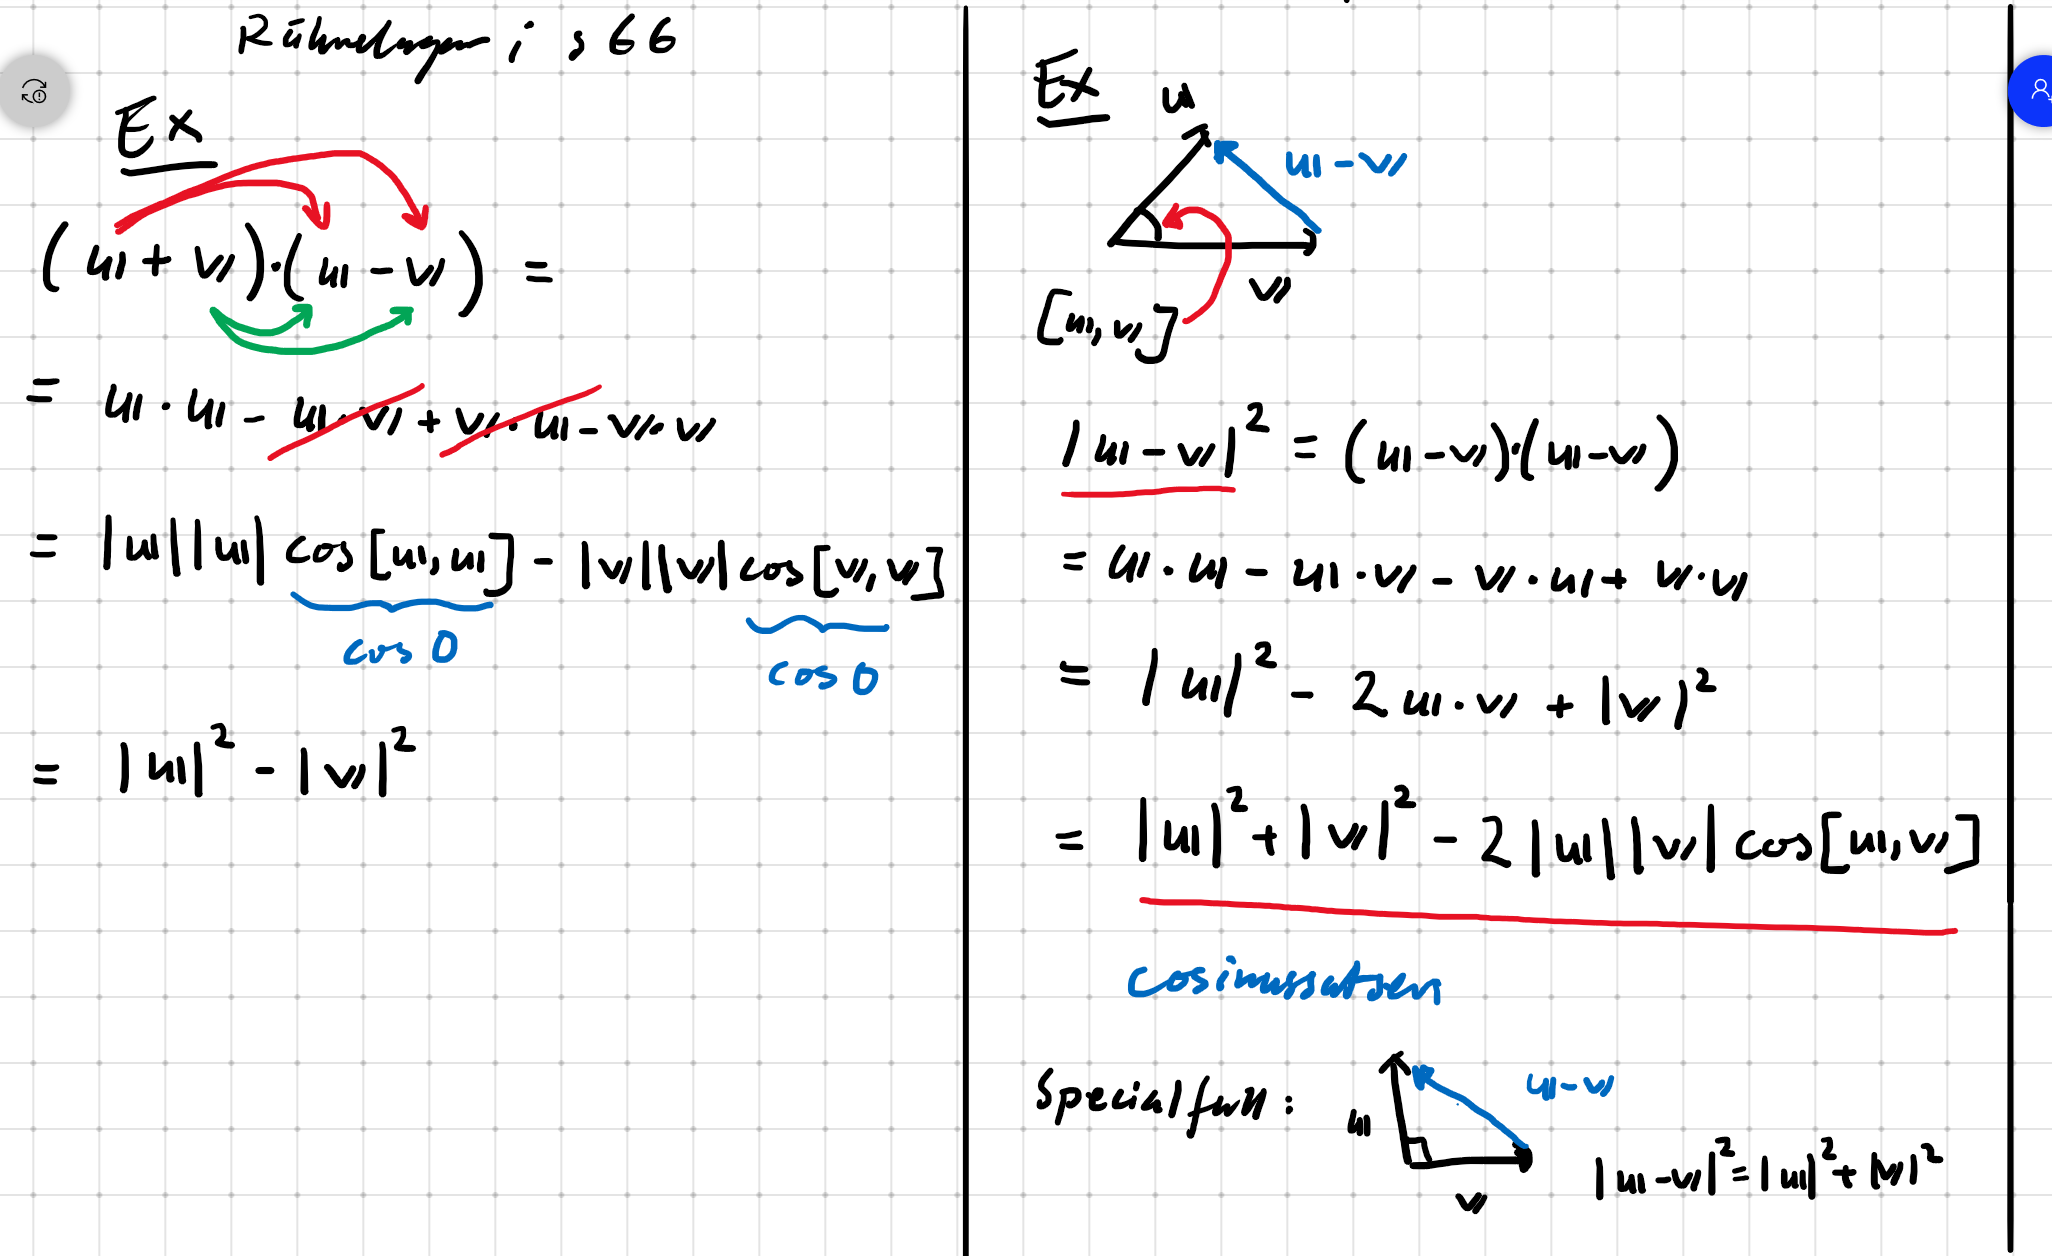 Räknelagar i s 66
Ex
(u + v)·(u − v) =
= u · u − u · v + v · u − v · v
= |u||u| cos[u, u] − |v||v| cos[v, v]
cos 0
cos 0
= |u|² − |v|²
Ex
u
u − v
v
[u, v]
|u − v|² = (u − v)·(u − v)
= u · u − u · v − v · u + v · v
= |u|² − 2 u · v + |v|²
= |u|² + |v|² − 2 |u||v| cos[u, v]
cosinussatsen
Specialfall:
u
u − v
v
|u − v|² = |u|² + |v|²